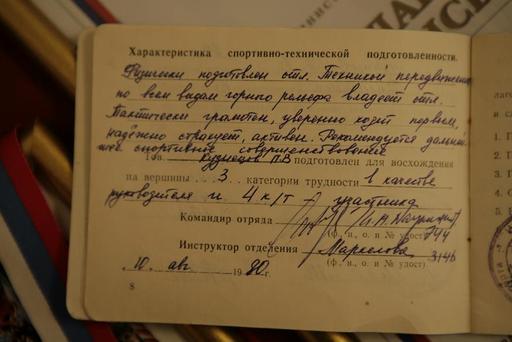 Характеристика спортивно-технической подготовленности.
Физически подготовлен отл. Техникой передвижения
по всем видам горного рельефа владеет отл.
Тактически грамотен, уверенно ходит первым,
надёжно страхует, активен. Рекомендуется дальней-
шее спортивное совершенствование
Тов. Кузнецов П.В подготовлен для восхождения
на вершины 3 категории трудности в качестве
руководителя и 4 к/т - участника
Командир отряда
(ф., и., о. и № удост.) 744
Инструктор отделения Маркелова 3146
(ф., и., о. и № удост.)
10 авг 1980 г.
8